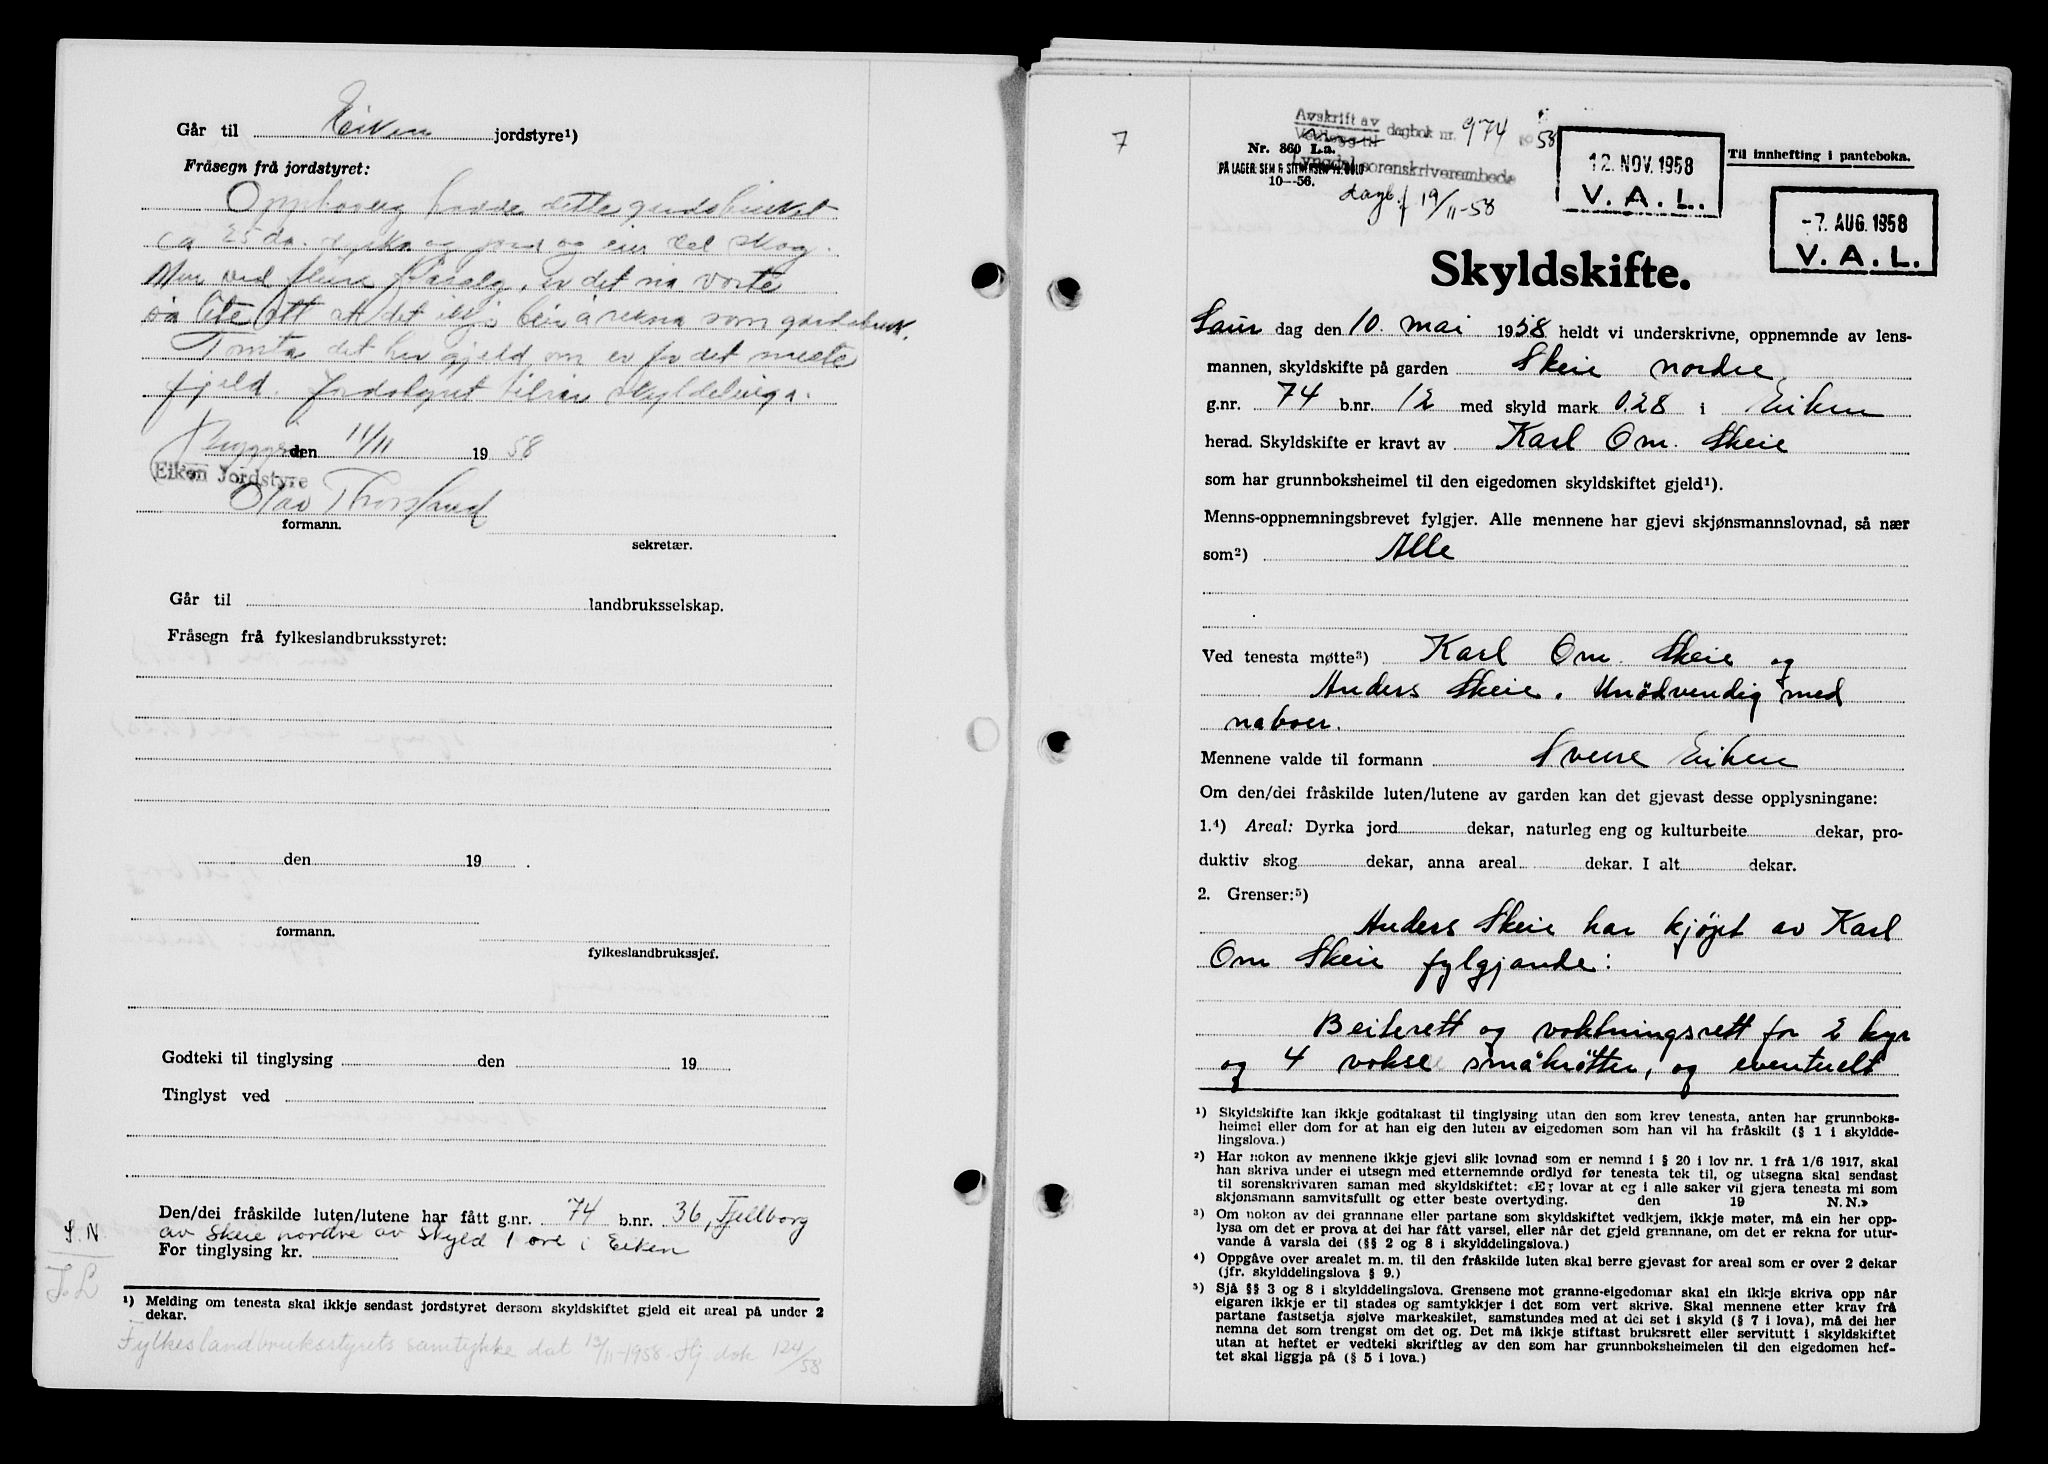 Går til Eiken jordstyre¹)
Fråsegn frå jordstyret:
Opphaveleg hadde dette gardsbruket
ca 25 da. dyrka og jord og ein del skog.
Men ved fleire frasalg, er det no vorte
så lite att at det ikkje bør å rekna som gardsbruk.
Tomta det her gjeld om er for det meste
fjell. Jordstyret tilrår skylddelinga.
den 11/11 1958
Eiken Jordstyre
Olav
formann.
sekretær.
Går til landbruksselskap.
Fråsegn frå fylkeslandbruksstyret:
den 19 .
formann.
fylkeslandbrukssjef.
Godteki til tinglysing den 19
Tinglyst ved
Den/dei fråskilde luten/lutene har fått g.nr. 74 b.nr. 36, Fjellborg
S.N. av Skeie nordre av skyld 1 øre i Eiken
For tinglysing kr.
J.L
¹) Melding om tenesta skal ikkje sendast jordstyret dersom skyldskiftet gjeld eit areal på under 2
dekar.
Fylkeslandbruksstyrets samtykke dat 13/11-1958. Hj dok 124/58
7
Avskrift av
Vedlegg til dagbok nr. 974 1958
Nr. 860 L.a.
Lyngdal sorenskriverembede
PÅ LAGER: SEM & STENERSEN A/S OSLO
10—56.
dagb.f 19/11-58
12. NOV. 1958
V. A. L.
Til innhefting i panteboka.
-7. AUG. 1958
V. A. L.
Skyldskifte.
Laur dag den 10. mai 1958 heldt vi underskrivne, oppnemnde av lens-
mannen, skyldskifte på garden Skeie nordre
g.nr. 74 b.nr. 12 med skyld mark 0.28 i Eiken
herad. Skyldskifte er kravt av Karl Om. Skeie
som har grunnboksheimel til den eigedomen skyldskiftet gjeld¹).
Menns-oppnemningsbrevet fylgjer. Alle mennene har gjevi skjønsmannslovnad, så nær
som²) Alle
Ved tenesta møtte³) Karl Om. Skeie og
Anders Skeie. Unödvendig med
naboer.
Mennene valde til formann Sverre Eiken
Om den/dei fråskilde luten/lutene av garden kan det gjevast desse opplysningane:
1.⁴) Areal: Dyrka jord dekar, naturleg eng og kulturbeite dekar, pro-
duktiv skog dekar, anna areal dekar. I alt dekar.
2. Grenser:⁵)
Anders Skeie har kjøpt av Karl
Om Skeie fylgjande:
Beiterett og voktningsrett for 2 kyr
og 4 voksne småkrøtter, og eventuelt
¹) Skyldskifte kan ikkje godtakast til tinglysing utan den som krev tenesta, anten har grunnboks-
heimel eller dom for at han eig den luten av eigedomen som han vil ha fråskilt (§ 1 i skyldde-
lingslova.)
²) Har nokon av mennene ikkje gjevi slik lovnad som er nemnd i § 20 i lov nr. 1 frå 1/6 1917, skal
han skriva under ei utsegn med etternemnde ordlyd før tenesta tek til, og utsegna skal sendast
til sorenskrivaren saman med skyldskiftet: «Eg lovar at eg i alle saker vil gjera tenesta mi som
skjønsmann samvitsfullt og etter beste overtyding. den 19 N. N.»
³) Om nokon av dei grannane eller partane som skyldskiftet vedkjem, ikkje møter, må ein her opp-
lysa om det er prova at dei har fått varsel, eller når det gjeld grannane, om det er rekna for utur-
vande å varsla dei (§§ 2 og 8 i skylddelingslova.)
⁴) Oppgåve over arealet m. m. til den fråskilde luten skal berre gjevast for areal som er over 2 dekar
(jfr. skylddelingslova § 9.)
⁵) Sjå §§ 3 og 8 i skylddelingslova. Grensene mot granne-eigedomar skal ein ikkje skriva opp når
eigaren ikkje er til stades og samtykkjer i det som vert skrive. Skal mennene etter krav frå
partane fastsetja sjølve markeskilet, samstundes med at dei set i skyld (§ 7 i lova), må dei her
nemna det som trengst om det og. Det må ikkje stiftast bruksrett eller servitutt i skyldskiftet
utan at heftet er vedteki skriftleg av den som har grunnboksheimelen til den eigedomen hef-
tet skal liggja på (§ 5 i lova.)